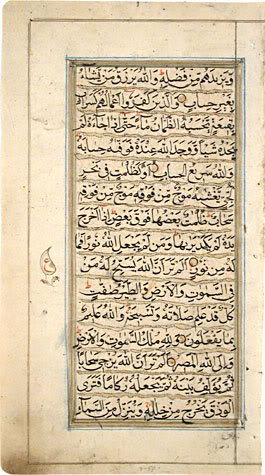 ويزيدهم من فضله والله يرزق من يشاء
بغير حساب والذين كفروا اعمالهم كسراب
بقيعة يحسبه الظمان ماء حتى اذا جاءه لم
يجده شيئا ووجد الله عنده فوفيه حسابه
والله سريع الحساب او كظلمت في بحر
لجي يغشيه موج من فوقه موج من فوقه
سحاب ظلمت بعضها فوق بعض اذا اخرج
يده لم يكد يريها ومن لم يجعل الله له نورا فما
له من نور الم تر ان الله يسبح له من
في السموت والارض والطير صفت
كل قد علم صلاته وتسبيحه والله عليم
بما يفعلون ولله ملك السموت والارض
والى الله المصير الم تر ان الله يزجي سحابا
ثم يؤلف بينه ثم يجعله ركاما فترى
الودق يخرج من خلله وينزل من السماء